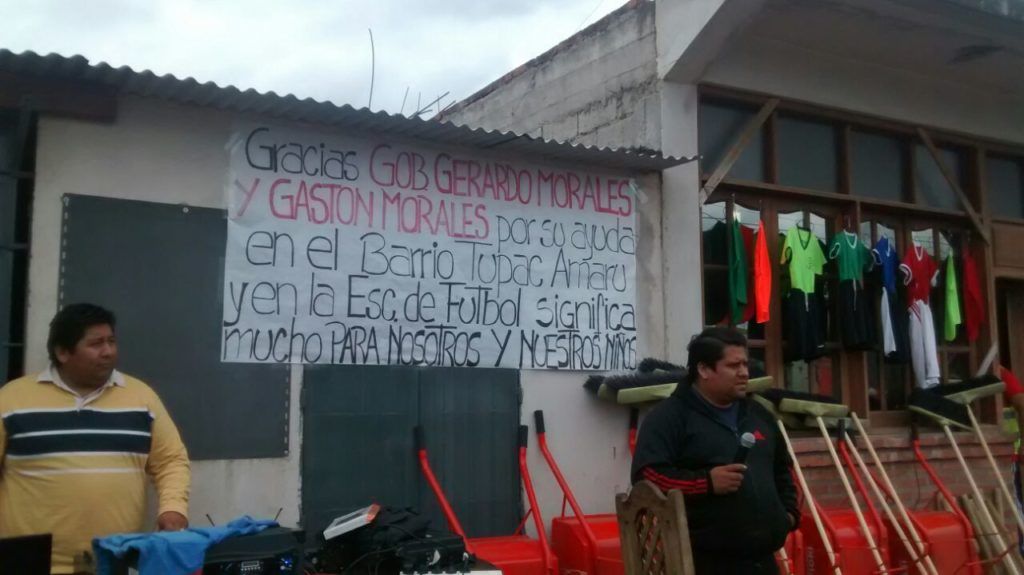 Gracias GOB GERARDO MORALES
Y GASTON MORALES por su ayuda
en el Barrio Tupac Amaru
y en la Esc. de FUTbOL significa
mucho PARA NOSOTROS Y NUESTROS NIÑOS